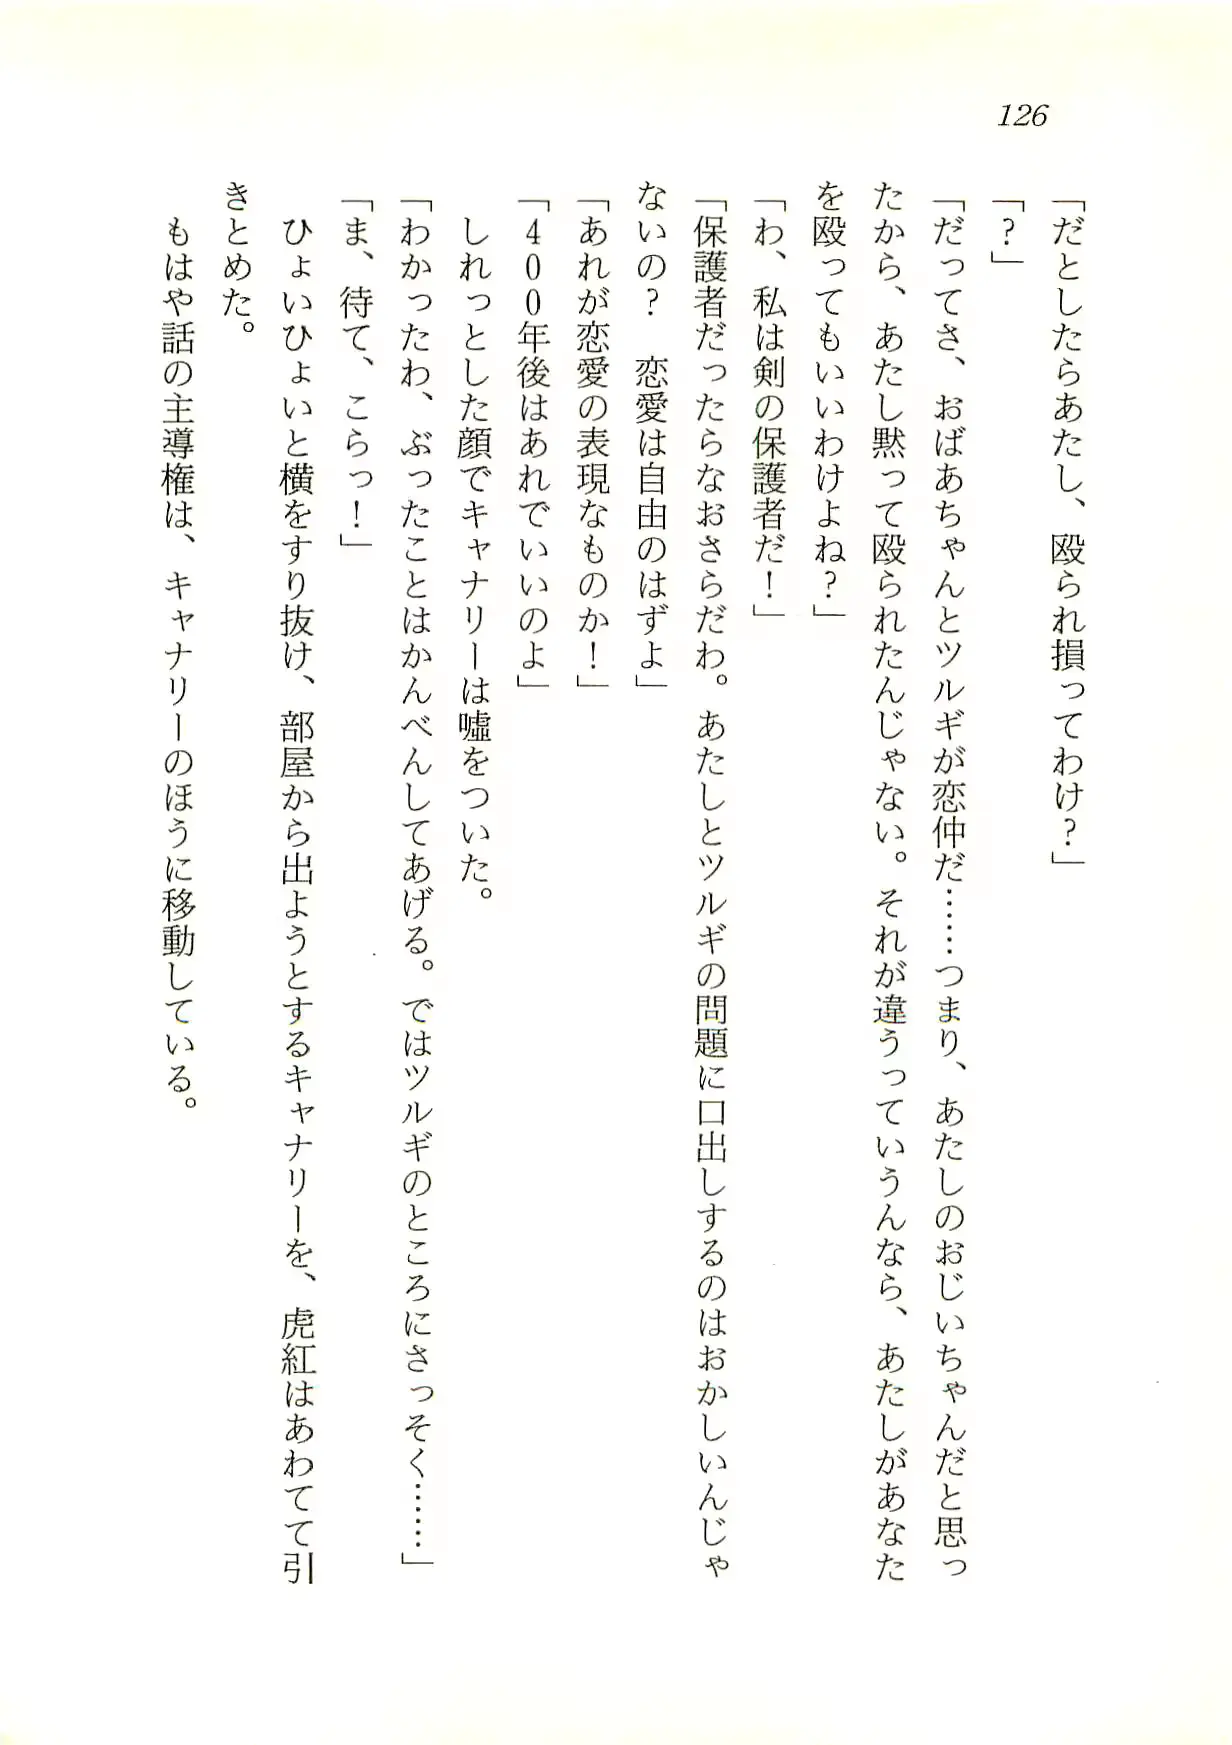 126
「だとしたらあたし、殴られ損ってわけ?」
「?」
「だってさ、おばあちゃんとツルギが恋仲だ……つまり、あたしのおじいちゃんだと思っ
たから、あたし黙って殴られたんじゃない。それが違うっていうんなら、あたしがあなた
を殴ってもいいわけよね?」
「わ、私は剣の保護者だ!」
「保護者だったらなおさらだわ。あたしとツルギの問題に口出しするのはおかしいんじゃ
ないの? 恋愛は自由のはずよ」
「あれが恋愛の表現なものか!」
「400年後はあれでいいのよ」
しれっとした顔でキャナリーは嘘をついた。
「わかったわ、ぶったことはかんべんしてあげる。ではツルギのところにさっそく……」
「ま、待て、こらっ!」
ひょいひょいと横をすり抜け、部屋から出ようとするキャナリーを、虎紅はあわてて引
きとめた。
もはや話の主導権は、キャナリーのほうに移動している。